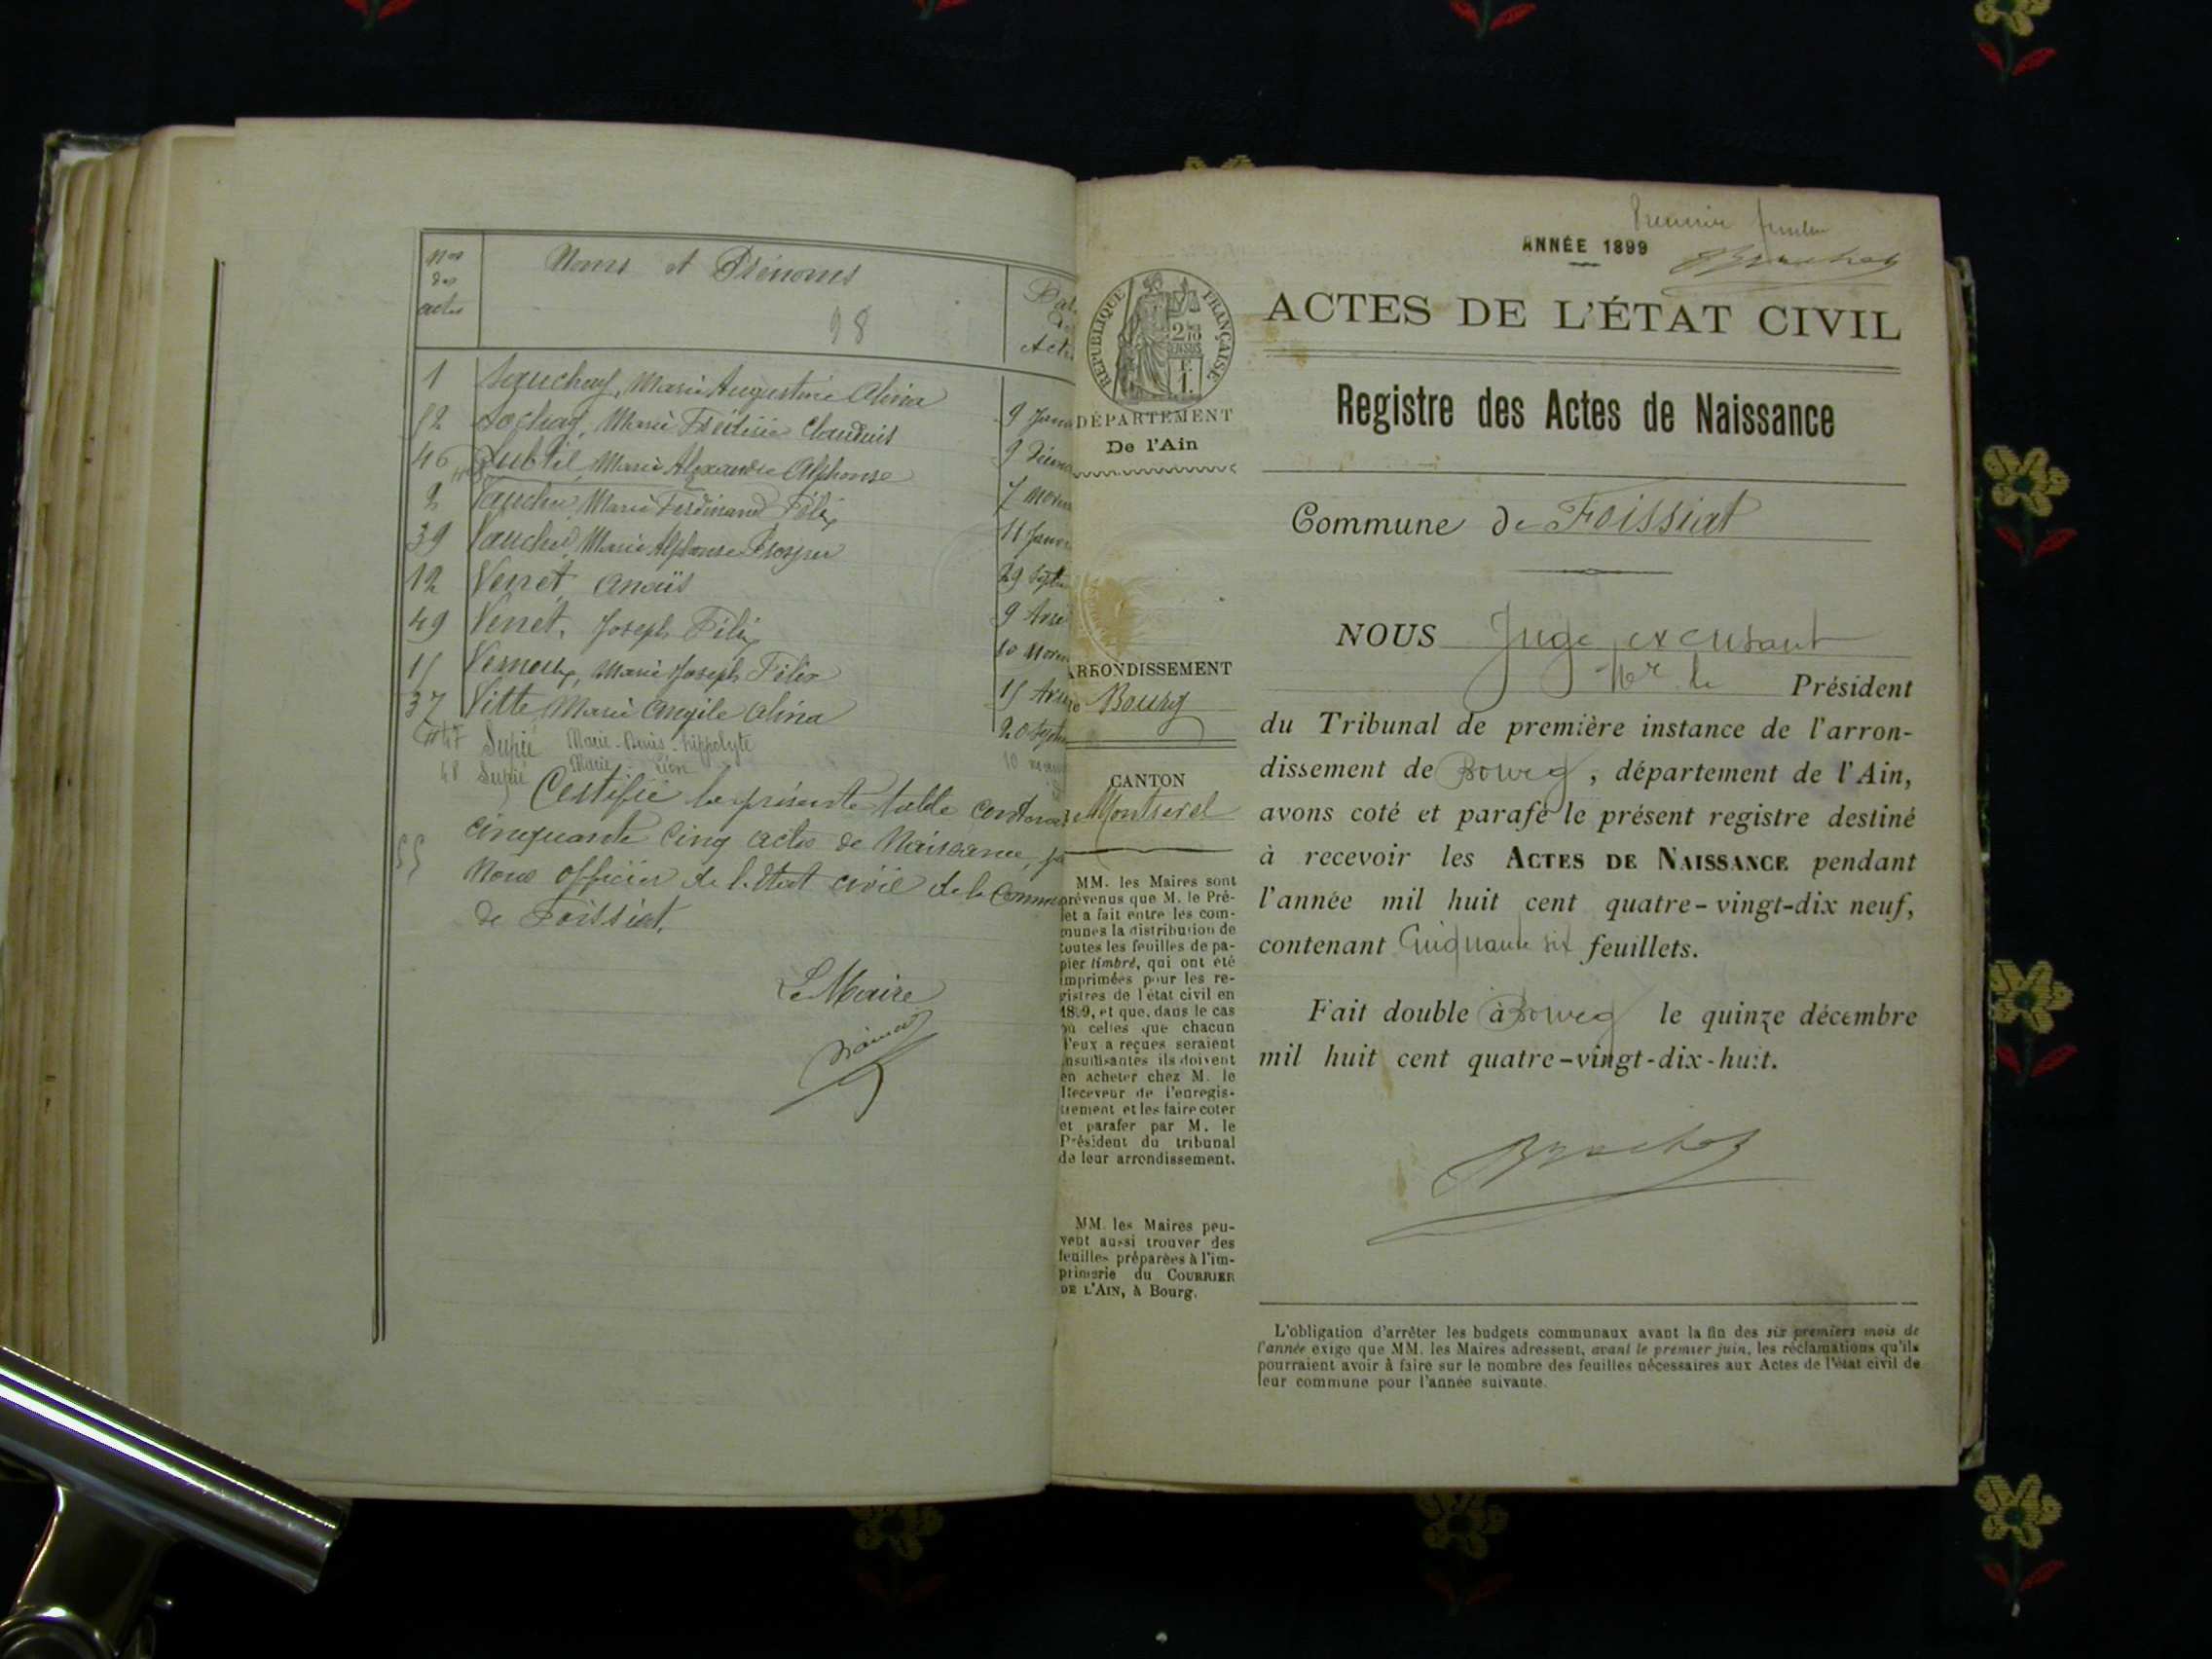 Nos des actes
Noms et Prénoms
98
1 Sauchay, Marie Augustine Alina 9
52 Sochay, Marie Claudius 9
46 Subtil, Marie Alexandre Alphonse 7
2 Vauché Marie Ferdinand Félix 11
39 Vauché, Marie Alphonse Prosper 29
12 Verret, Anaïs 9
49 Verret, Joseph Félix 10
15 Vernoux, Marie Joseph Félix 15
37 Vitte Marie Angile Alina 20
47 Supié Marie - Hippolyte 10
48 Supié Marie Léon
Certifié la présente table
cinquante cinq actes de Naissance,
55
Nous officier de l'état civil de la
de Foissiat.
Le Maire
Premier feuillet
ANNÉE 1899
RÉPUBLIQUE FRANÇAISE
ACTES DE L'ÉTAT CIVIL
Registre des Actes de Naissance
DÉPARTEMENT
De l'Ain
Commune de Foissiat
ARRONDISSEMENT
Bourg
CANTON
Montrevel
NOUS Juge excusant
Mr le Président
du Tribunal de première instance de l'arron-
dissement de Bourg, département de l'Ain,
avons coté et parafé le présent registre destiné
à recevoir les ACTES DE NAISSANCE pendant
l'année mil huit cent quatre-vingt-dix neuf,
contenant Cinquante six feuillets.
Fait double à Bourg le quinze décembre
mil huit cent quatre-vingt-dix-huit.
MM. les Maires sont
prévenus que M. le Pré-
fet a fait entre les com-
munes la distribution de
toutes les feuilles de pa-
pier timbré, qui ont été
imprimées pour les re-
gistres de l'état civil en
1899, et que, dans le cas
où celles que chacun
d'eux a reçues seraient
insuffisantes ils doivent
en acheter chez M. le
Receveur de l'enregis-
trement et les faire coter
et parafer par M. le
Président du tribunal
de leur arrondissement.
MM. les Maires peu-
vent aussi trouver des
feuilles préparées à l'im-
primerie du COURRIER
DE L'AIN, à Bourg.
L'obligation d'arrêter les budgets communaux avant la fin des six premiers mois de
l'année exige que MM. les Maires adressent, avant le premier juin, les réclamations qu'ils
pourraient avoir à faire sur le nombre des feuilles nécessaires aux Actes de l'état civil de
leur commune pour l'année suivante.